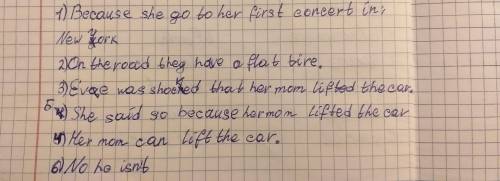 1) Because she go to her first concert in;
New York
2) On the road they have a flat tire.
3) Evae was shocked that her mom lifted the car.
5) She said so because her mom lifted the car
4) Her mom can lift the car.
6) No he isn't